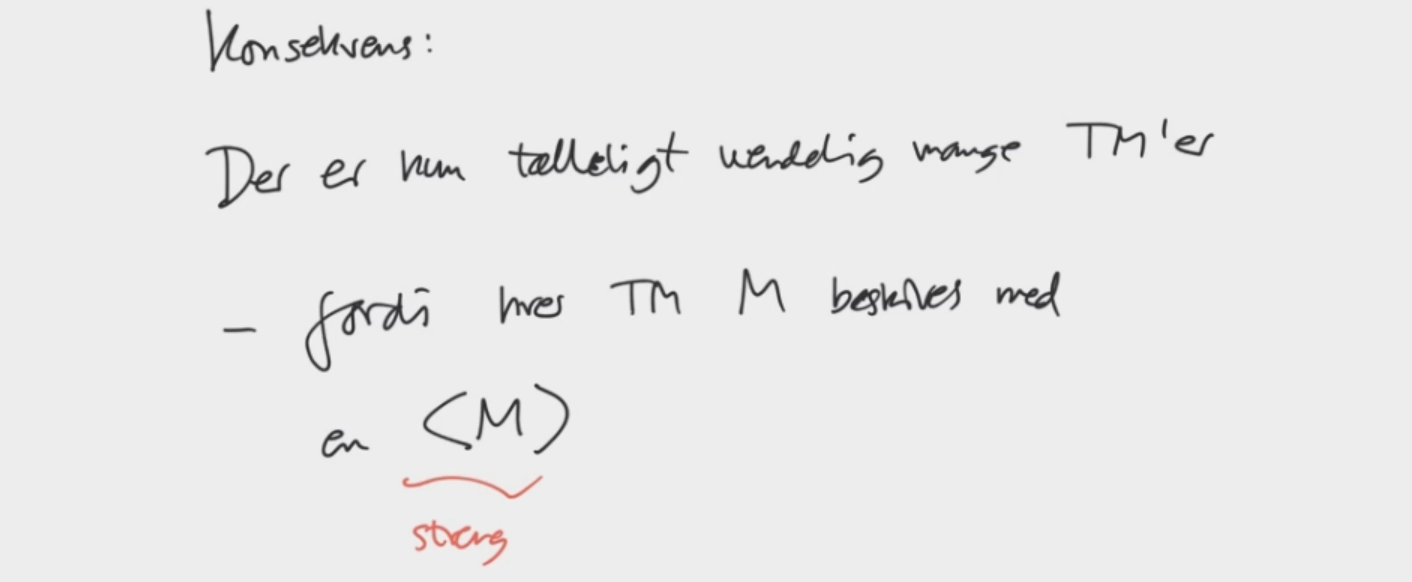 Konsekvens:
Der er kun tælleligt uendelig mange TM'er
- fordi hver TM M beskrives med
en ⟨M⟩
streng